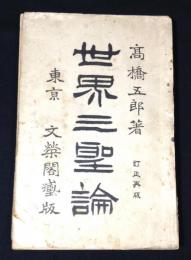 高橋五郎著
訂正再版
世界三聖論
東京　文榮閣藏版